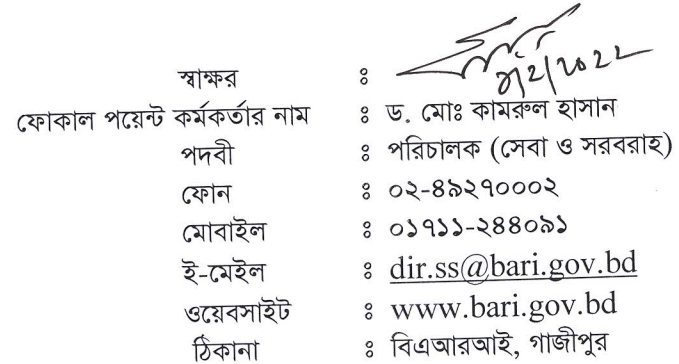 স্বাক্ষর ঃ
2/2022
ফোকাল পয়েন্ট কর্মকর্তার নাম ঃ ড. মোঃ কামরুল হাসান
পদবী ঃ পরিচালক (সেবা ও সরবরাহ)
ফোন ঃ ০২-৪৯২৭০০০২
মোবাইল ঃ ০১৭১১-২৪৪০৯১
ই-মেইল ঃ dir.ss@bari.gov.bd
ওয়েবসাইট ঃ www.bari.gov.bd
ঠিকানা ঃ বিএআরআই, গাজীপুর